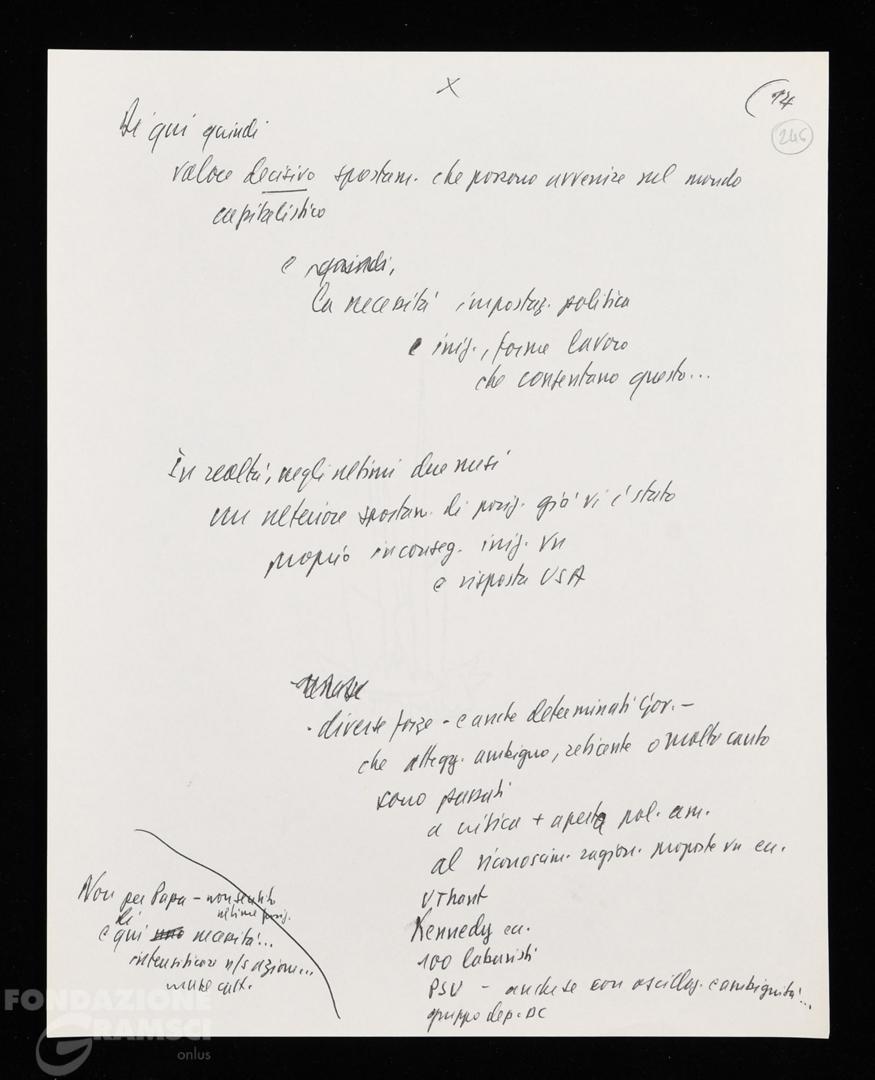 X
14
246
Di qui quindi
valore decisivo spostam. che possono avvenire nel mondo
capitalistico
e quindi,
la necessità impostaz. politica
e iniz., forme lavoro
che consentano questo...
In realtà, negli ultimi due mesi
un ulteriore spostam. di posiz. già vi è stato
proprio in conseg. iniz. VN
e risposta USA
- diverse forze - e anche determinati Gov. -
che attegg. ambiguo, reticente o molto cauto
sono passati
a critica + aperta pol. am.
al riconoscim. ragion. proposte VN ecc.
U Thant
Kennedy ecc.
100 laburisti
PSU - anche se con oscillaz. e ambiguità...
gruppo dep. DC
Non per Papa - non sentito
ultime posiz.
di
e qui necessità...
intensificare n/s azione...
mondo catt.
FONDAZIONE
GRAMSCI
onlus